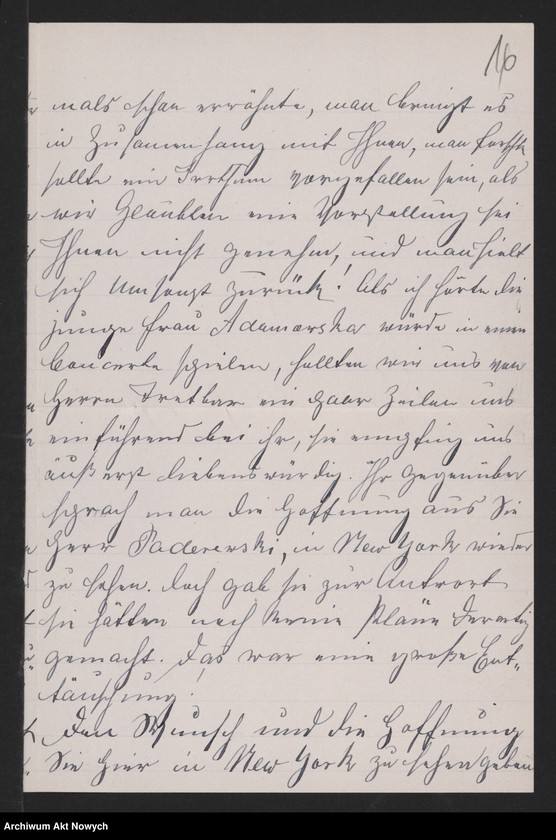 16
mals schon erwähnte, man bringt es
in Zusamenhang mit Ihnen, man
sollte ein Irrthum vorgefallen sein, als
wir Glaubten eine Vorstellung sei
Ihnen nicht genehm, und man hielt
sich umsonst zurück! Als ich hörte die
junge Frau Adamowska würde in einen
Concerte spielen, hollten wir uns von
Herrn Tretbar ein paar Zeilen uns
einführend bei ihr, sie empfing uns
äußerst liebenswürdig. Ihr gegenüber
sprach man die Hoffnung aus Sie
Herr Paderewski, in New York wieder
zu sehen. doch gab sie zur Antwort
sie hätten noch keine Pläne derartig
gemacht. Das war eine große Ent-
täuschung.
Den Wunsch und die Hoffnung
Sie hier in New York zu sehen geben
Archiwum Akt Nowych